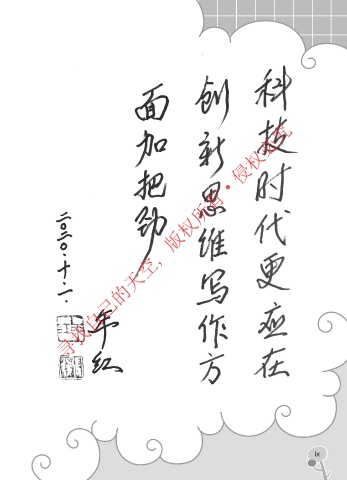 科技时代更应在
创新思维写作方
面加把劲
年红
寻找自己的天空，版权所有·侵权必究
ix